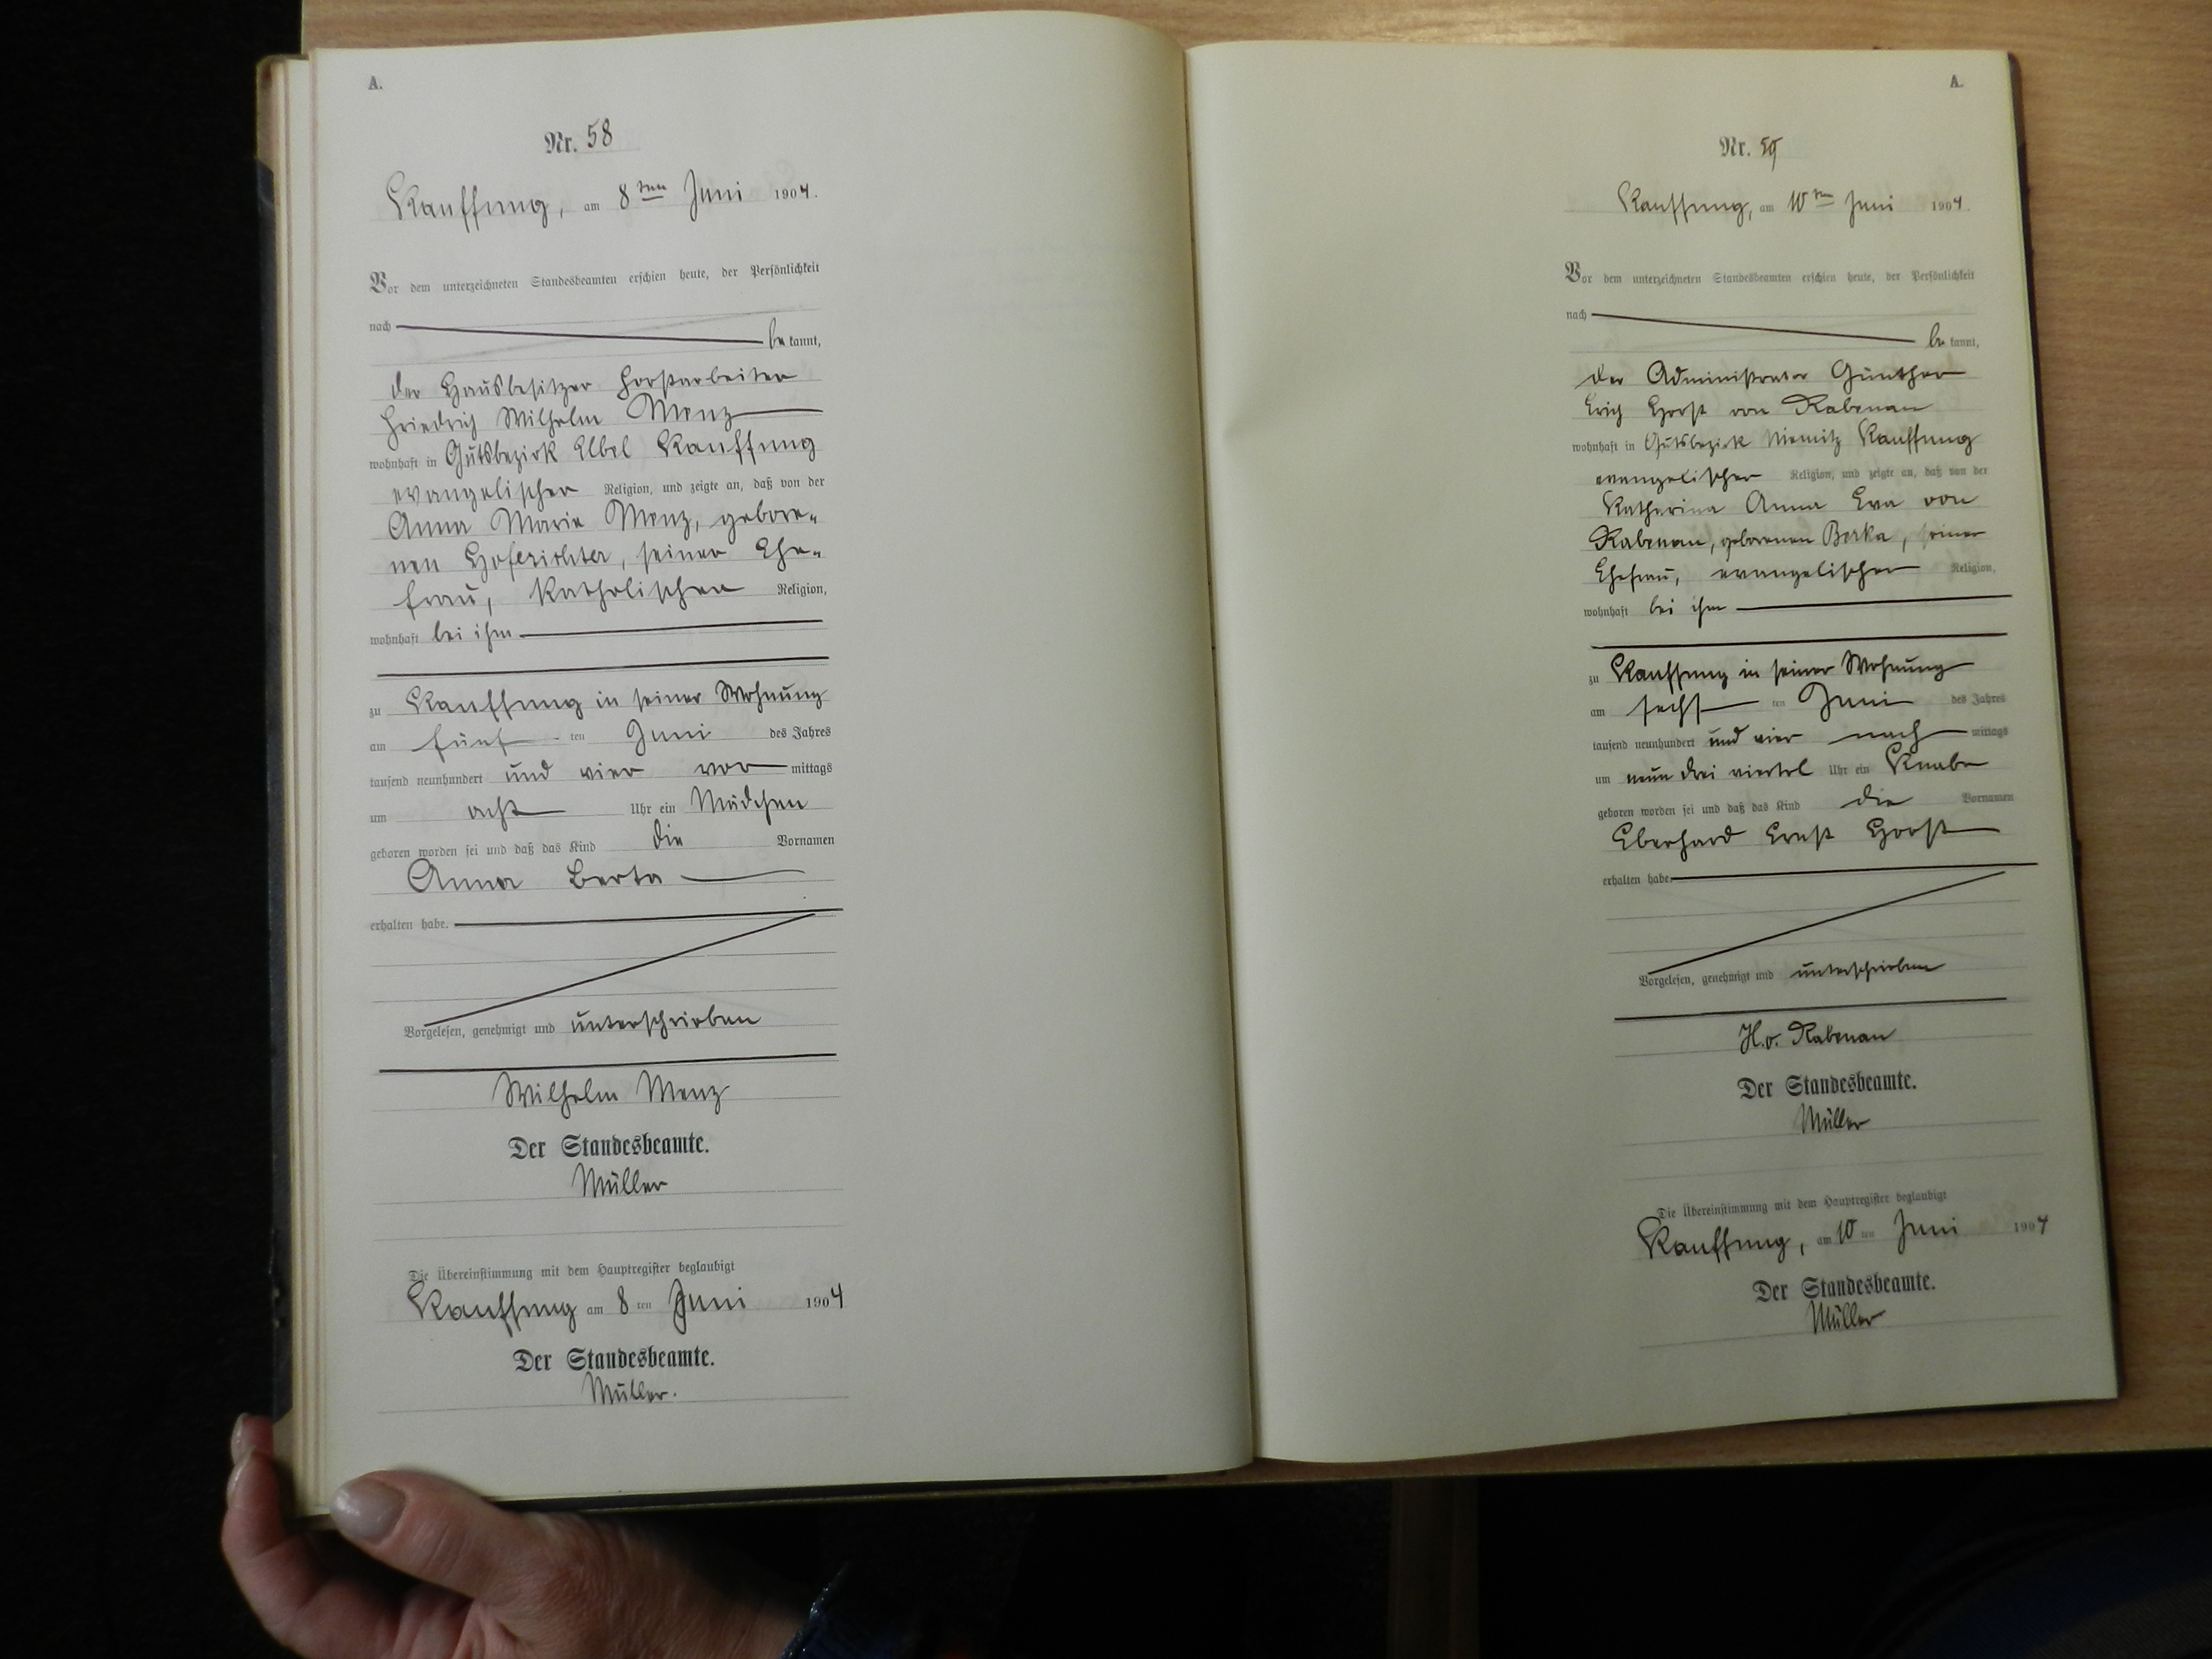 A.
Nr. 58
Kauffung, am 8ten Juni 1904.
Vor dem unterzeichneten Standesbeamten erschien heute, der Persönlichkeit
nach be kannt,
der Hausbesitzer Forstarbeiter
Friedrich Wilhelm Menz
wohnhaft in Gutsbezirk Elbel Kauffung
evangelischer Religion, und zeigte an, daß von der
Anna Marie Menz, gebore-
nen Hoferichter, seiner Ehe-
frau, katholischer Religion,
wohnhaft bei ihm
zu Kauffung in seiner Wohnung
am fünf ten Juni des Jahres
tausend neunhundert und vier vor mittags
um acht Uhr ein Mädchen
geboren worden sei und daß das Kind die Vornamen
Anna Berta
erhalten habe.
Vorgelesen, genehmigt und unterschrieben
Wilhelm Menz
Der Standesbeamte.
Müller
Die Übereinstimmung mit dem Hauptregister beglaubigt
Kauffung am 8 ten Juni 1904
Der Standesbeamte.
Müller.
A.
Nr. 59
Kauffung, am 10ten Juni 1904.
Vor dem unterzeichneten Standesbeamten erschien heute, der Persönlichkeit
nach be kannt,
der Administrator Günther
Erich Horst von Rabenau
wohnhaft in Gutsbezirk Niemitz Kauffung
evangelischer Religion, und zeigte an, daß von der
Katharina Anna Eva von
Rabenau, geborenen Berka, seiner
Ehefrau, evangelischer Religion,
wohnhaft bei ihm
zu Kauffung in seiner Wohnung
am sechs ten Juni des Jahres
tausend neunhundert und vier nach mittags
um neun drei viertel Uhr ein Knabe
geboren worden sei und daß das Kind die Vornamen
Eberhard Ernst Horst
erhalten habe.
Vorgelesen, genehmigt und unterschrieben
H. v. Rabenau
Der Standesbeamte.
Müller
Die Übereinstimmung mit dem Hauptregister beglaubigt
Kauffung, am 10 ten Juni 1904
Der Standesbeamte.
Müller